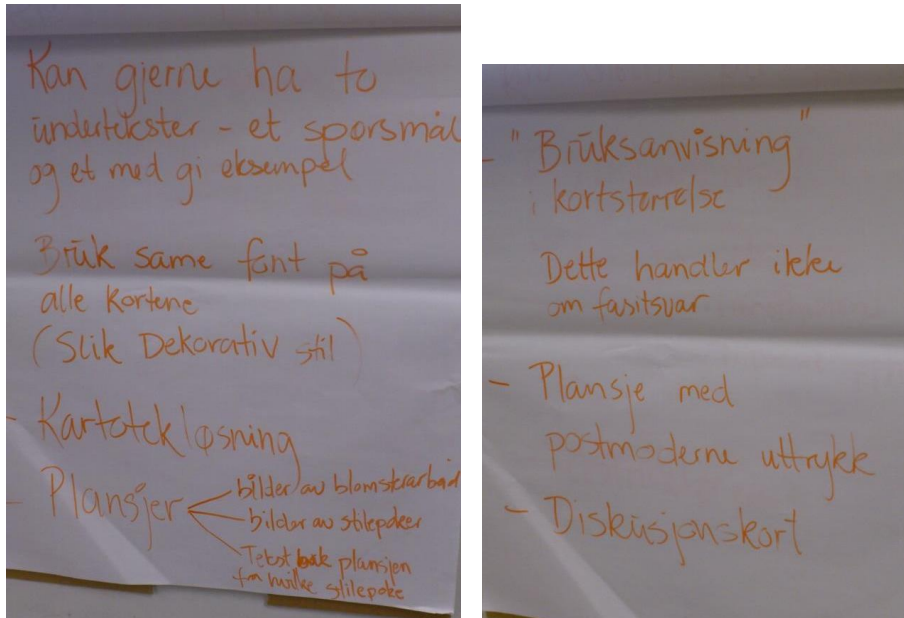 Kan gjerne ha to
undertekster - et spørsmål
og et med gi eksempel
Bruk same font på
alle kortene
(Slik Dekorativ stil)
- Kartotekløsning
- Plansjer
bilder av blomsterarbeid
bilder av stilepoker
Tekst bak plansjen
for hvilke stilepoke
- "Bruksanvisning"
i kortstørrelse
Dette handler ikke
om fasitsvar
- Plansje med
postmoderne uttrykk
- Diskusjonskort